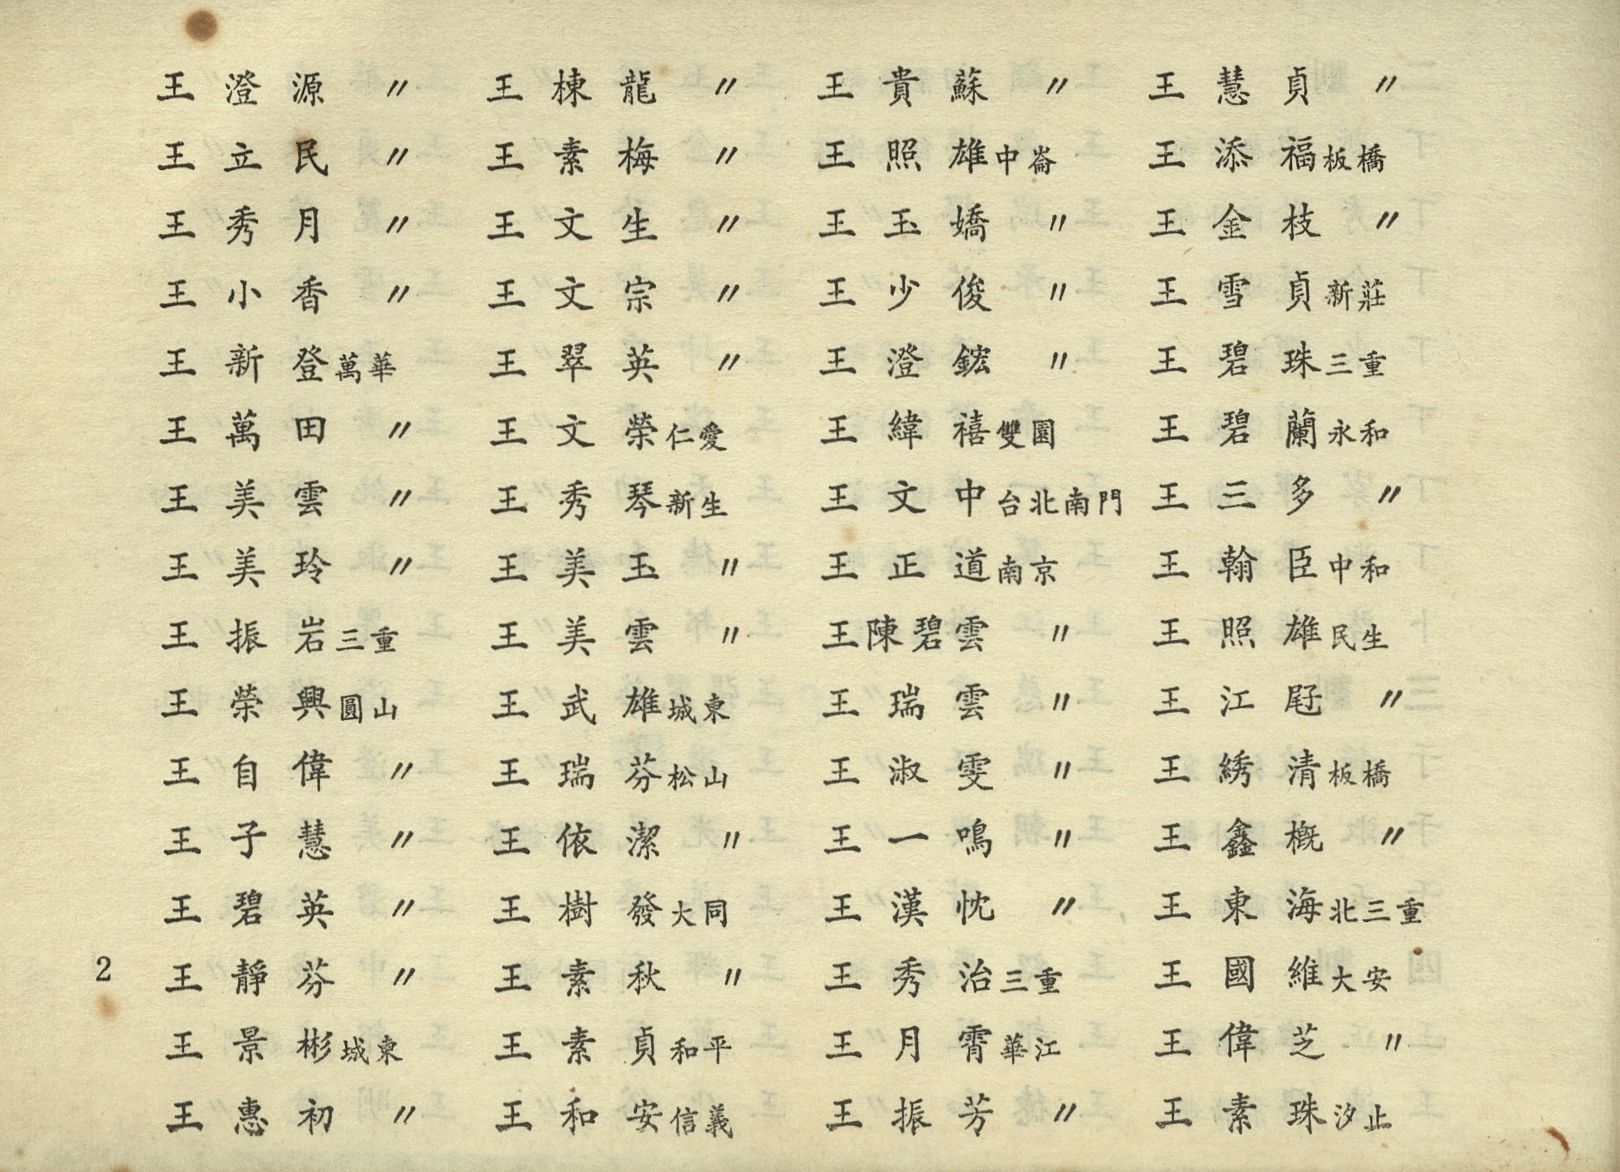 王澄源 〃
王立民 〃
王秀月 〃
王小香 〃
王新登萬華
王萬田 〃
王美雲 〃
王美玲 〃
王振岩三重
王榮興圓山
王自偉 〃
王子慧 〃
王碧英 〃
王靜芬 〃
王景彬城東
王惠初 〃
王棟龍 〃
王素梅 〃
王文生 〃
王文宗 〃
王翠英 〃
王文榮仁愛
王秀琴新生
王美玉 〃
王美雲 〃
王武雄城東
王瑞芬松山
王依潔 〃
王樹發大同
王素秋 〃
王素貞和平
王和安信義
王貴蘇 〃
王照雄中崙
王玉嬌 〃
王少俊 〃
王澄鋐 〃
王緯禧雙園
王文中台北南門
王正道南京
王陳碧雲 〃
王瑞雲 〃
王淑雯 〃
王一鳴 〃
王漢忱 〃
王秀治三重
王月霄華江
王振芳 〃
王慧貞 〃
王添福板橋
王金枝 〃
王雪貞新莊
王碧珠三重
王碧蘭永和
王三多 〃
王翰臣中和
王照雄民生
王江 〃
王綉清板橋
王鑫概 〃
王東海北三重
王國維大安
王偉芝 〃
王素珠汐止
2